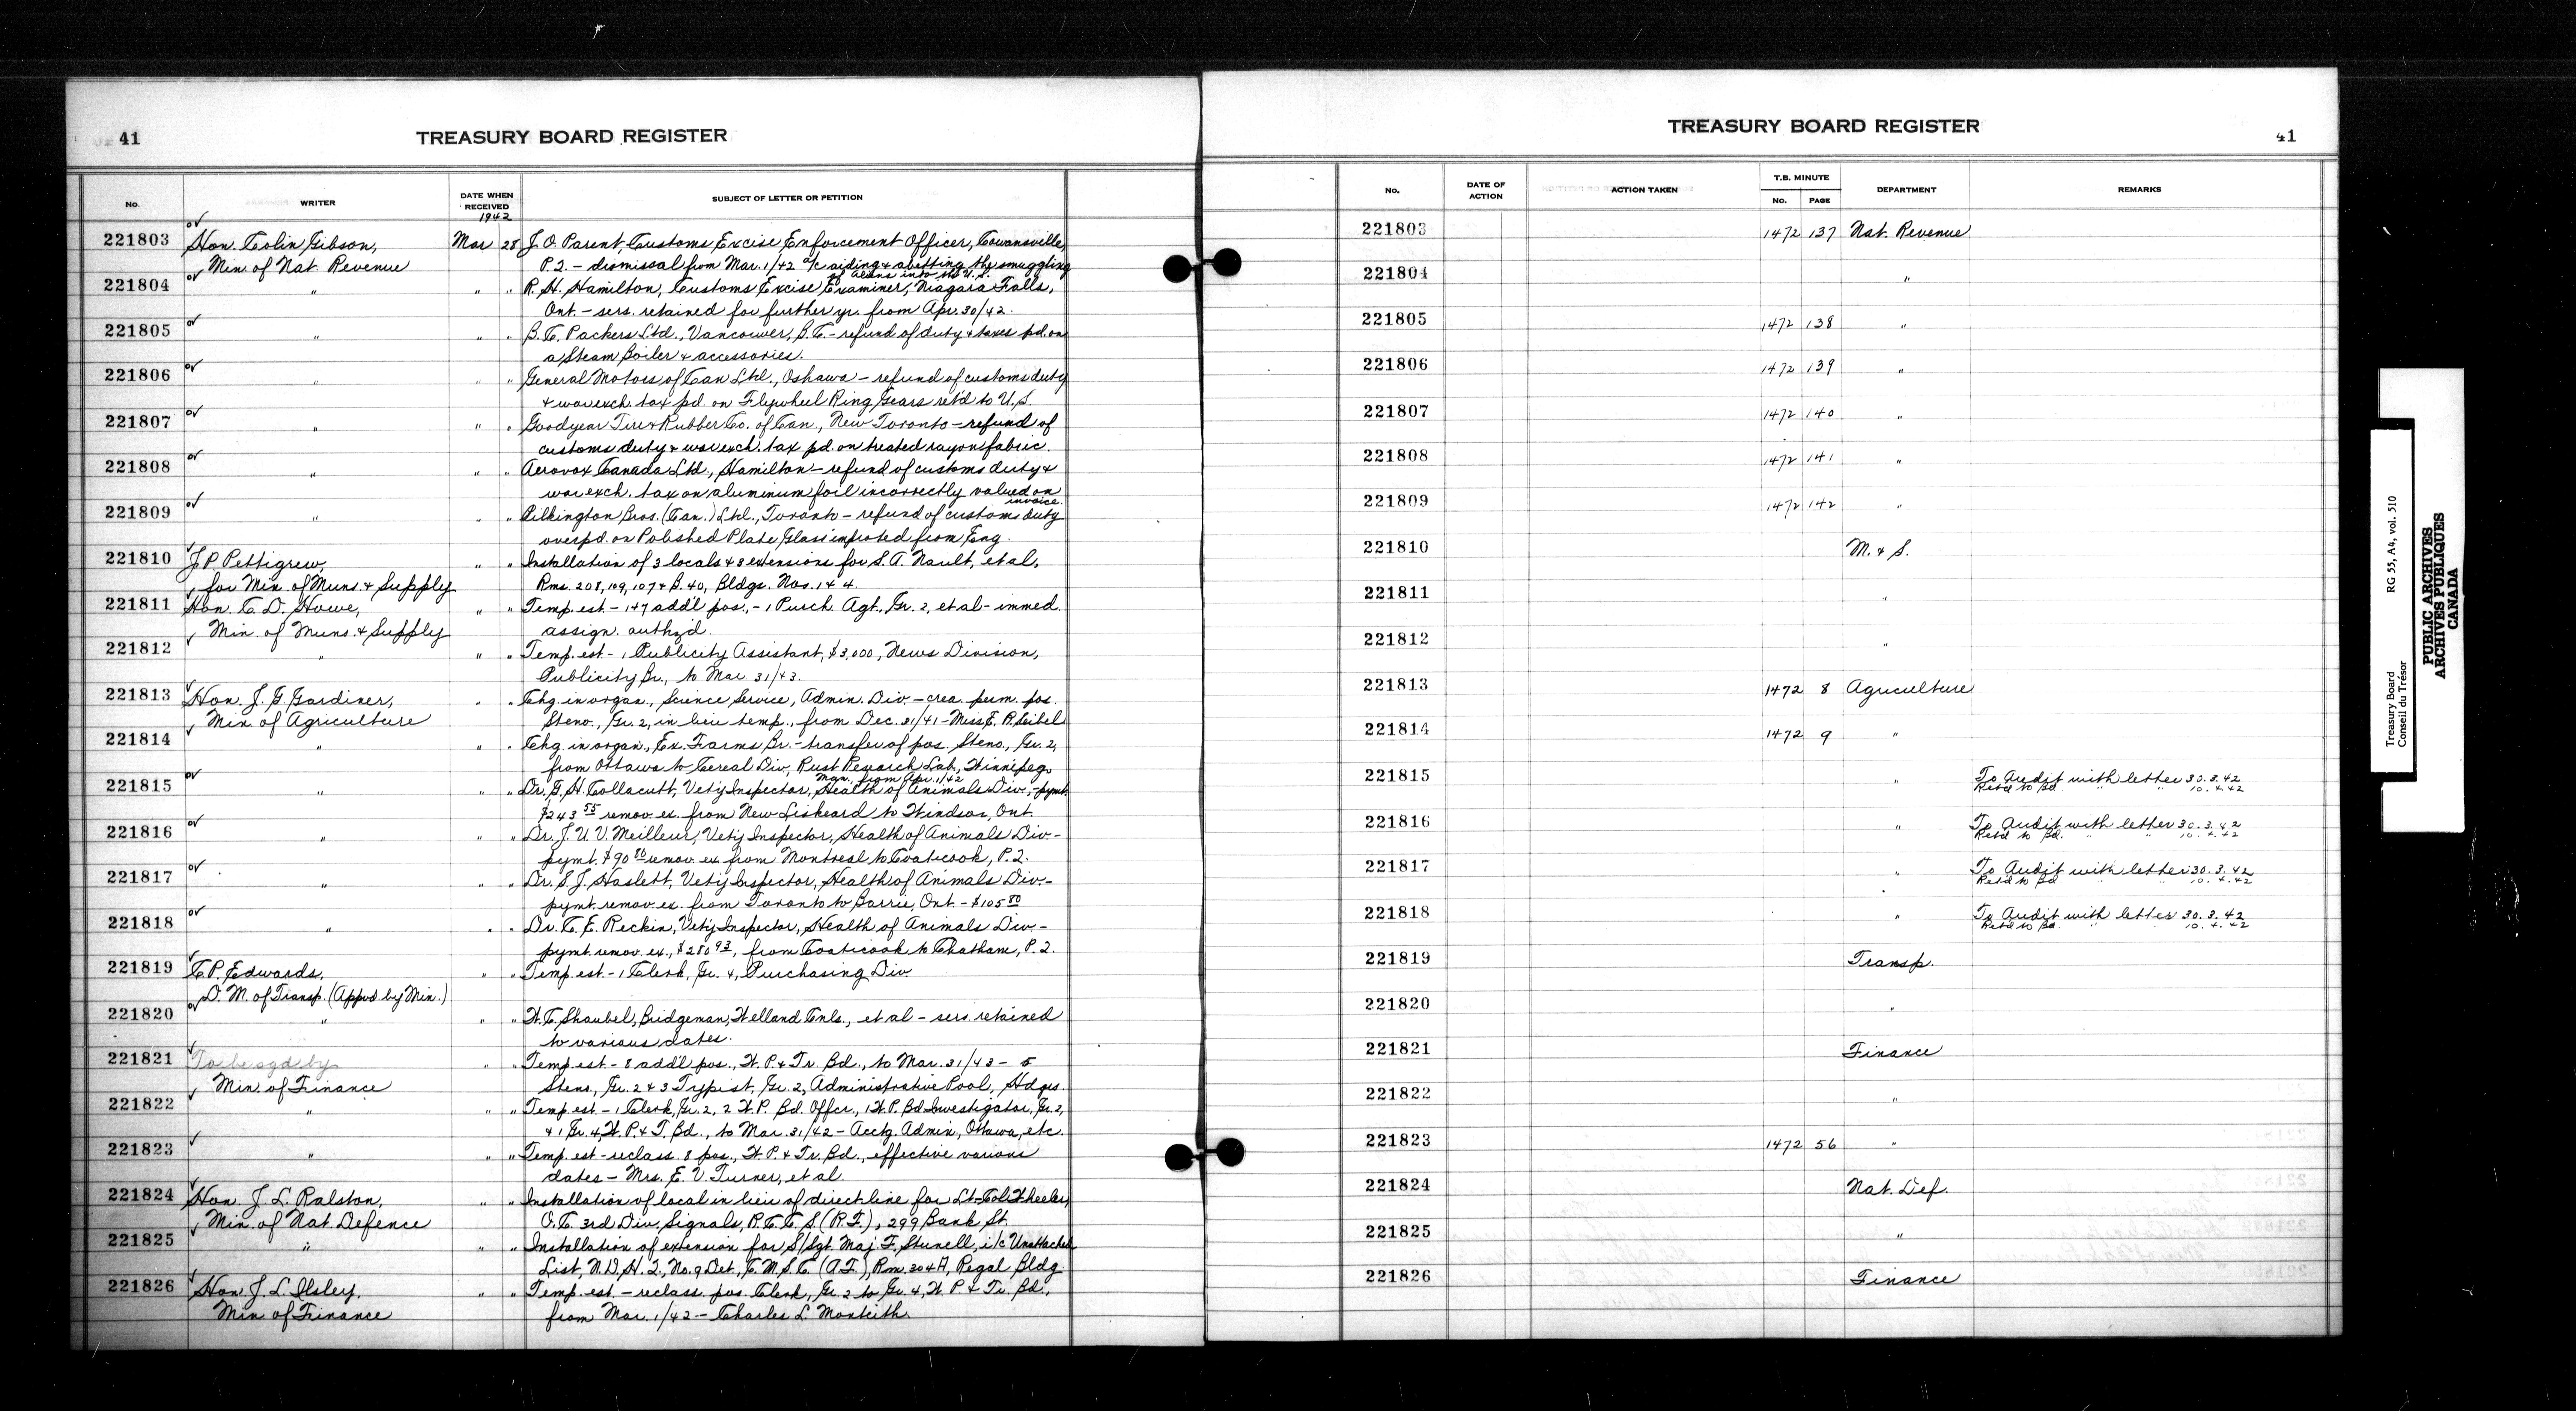 41
TREASURY BOARD REGISTER
No. WRITER DATE WHEN RECEIVED SUBJECT OF LETTER OR PETITION
1942
221803 Hon. Colin Gibson, Mar 28 J. O. Parent, Customs Excise Enforcement Officer, Cowansville,
Min. of Nat. Revenue P.Q. – dismissal from Mar. 1/42 a/c aiding & abetting the smuggling
of aliens into the U.S.
221804 " " " R. H. Hamilton, Customs Excise Examiner, Niagara Falls,
Ont. – sers. retained for further yr. from Apr. 30/42.
221805 " " " B.C. Packers Ltd., Vancouver, B.C. – refund of duty & taxes pd. on
a Steam Boiler & accessories.
221806 " " " General Motors of Can Ltd., Oshawa – refund of customs duty
& war exch. tax pd. on Flywheel Ring Gears ret'd to U.S.
221807 " " " Goodyear Tire & Rubber Co. of Can., New Toronto – refund of
customs duty & war exch. tax pd. on treated rayon fabric.
221808 " " " Aerovox Canada Ltd., Hamilton – refund of customs duty &
war exch. tax on aluminum foil incorrectly valued on
invoice.
221809 " " " Pilkington Bros. (Can.) Ltd., Toronto – refund of customs duty
overpd. on Polished Plate Glass imported from Eng.
221810 J P. Pettigrew, " " Installation of 3 locals & 3 extensions for S. A. Nault, et al,
for Min. of Muns. & Supply Rms. 208, 109, 107 & B. 40, Bldgs. Nos. 1 & 4.
221811 Hon. C. D. Howe, " " Temp. est – 147 add'l pos., – 1 Purch. Agt., Gr. 2, et al – immed.
Min. of Muns. & Supply assign. authzd.
221812 " " " Temp. est – 1 Publicity Assistant, $3,000, News Division,
Publicity Br., to Mar. 31/43.
221813 Hon. J. G. Gardiner, " " Chg. in organ., Science Service, Admin. Div. – crea. perm. pos.
Min. of Agriculture Steno., Gr. 2, in lieu temp., from Dec. 31/41 – Miss E. R. Seibel
221814 " " " Chg. in organ., Ex. Farms Br. – transfer of pos. Steno., Gr. 2,
from Ottawa to Cereal Div., Rust Research Lab., Winnipeg,
Man., from Apr. 1/42
221815 " " " Dr. G. H. Collacutt, Vet'y Inspector, Health of Animals Div., – pymt.
$243.55 remov. ex. from New Liskeard to Windsor, Ont.
221816 " " " Dr. J. U. V. Meilleur, Vet'y Inspector, Health of Animals Div. –
pymt. $90.80 remov. ex. from Montreal to Coaticook, P.Q.
221817 " " " Dr. S. J. Haslett, Vet'y Inspector, Health of Animals Div. –
pymt. remov. ex. from Toronto to Barrie, Ont. – $105.80
221818 " " " Dr. C. E. Reckin, Vet'y Inspector, Health of Animals Div –
pymt. remov. ex., $280.93, from Coaticook to Chatham, P.Q.
221819 C P. Edwards, " " Temp. est – 1 Clerk, Gr. 4, Purchasing Div.
D. M. of Transp. (Appvd. by Min.)
221820 " " " W. C. Shaubel, Bridgeman, Welland Cnls., et al – sers. retained
to various dates.
221821 To be sgd by " " Temp. est – 8 add'l pos., W. P. & Tr. Bd., to Mar. 31/43 – 5
Min. of Finance Steno., Gr. 2 & 3 Typist, Gr. 2, Administrative Pool, Hdqrs.
221822 " " " Temp. est. – 1 Clerk, Gr. 2, 2 W.P. Bd. Offcr., 1 W.P. Bd Investigator, Gr. 2,
& 1 Gr. 4, W. P. & T. Bd., to Mar. 31/42 – Acctg. Admin, Ottawa, etc.
221823 " " " Temp. est – reclass. 8 pos., W. P. & Tr. Bd., effective various
dates – Mrs. E. V. Turner, et al.
221824 Hon. J. L. Ralston, " " Installation of local in lieu of direct line for Lt. Col. Wheeler,
Min. of Nat. Defence O.C. 3rd Div. Signals, R.C.C.S (R.F.), 299 Bank St.
221825 " " " Installation of extension for S/Sgt. Maj. F. Stunell, i/c Unattached
List, N.D.H.Q., No. 9 Det., C.M.S.C. (A.F.), Rm. 304A, Regal Bldg.
221826 Hon J. L. Ilsley, " " Temp. est. – reclass. pos. Clerk, Gr. 2 to Gr. 4, W. P. & Tr. Bd.,
Min. of Finance from Mar. 1/42 – Charles L. Monteith.
TREASURY BOARD REGISTER
41
No. DATE OF ACTION ACTION TAKEN T.B. MINUTE No. PAGE DEPARTMENT REMARKS
221803 1472 137 Nat. Revenue
221804 "
221805 1472 138 "
221806 1472 139 "
221807 1472 140 "
221808 1472 141 "
221809 1472 142 "
221810 M. & S.
221811 "
221812 "
221813 1472 8 Agriculture
221814 1472 9 "
221815 " To Audit with letter 30.3.42
Retd to Bd. " " 10.4.42
221816 " To Audit with letter 30.3.42
Retd to Bd. " " 10.4.42
221817 " To Audit with letter 30.3.42
Retd to Bd " " 10.4.42
221818 " To Audit with letter 30.3.42
Retd to Bd. " " 10.4.42
221819 Transp.
221820 "
221821 Finance
221822 "
221823 1472 56 "
221824 Nat. Def.
221825 "
221826 Finance
Treasury Board RG 55, A4, vol. 510
Conseil du Trésor
PUBLIC ARCHIVES
ARCHIVES PUBLIQUES
CANADA